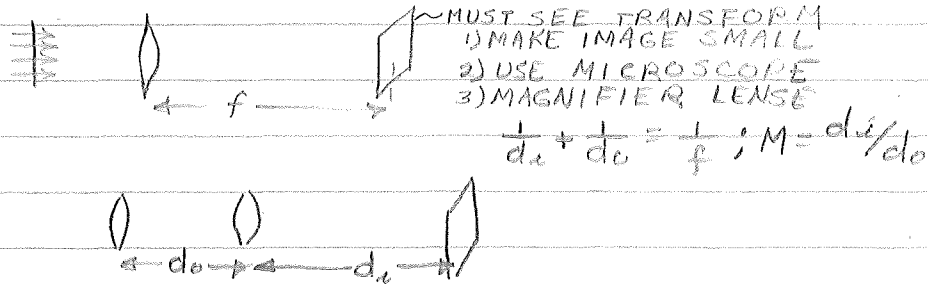 MUST SEE TRANSFORM
1) MAKE IMAGE SMALL
2) USE MICROSCOPE
3) MAGNIFIER LENSE
f
1/di + 1/do = 1/f ; M = di/do
do di